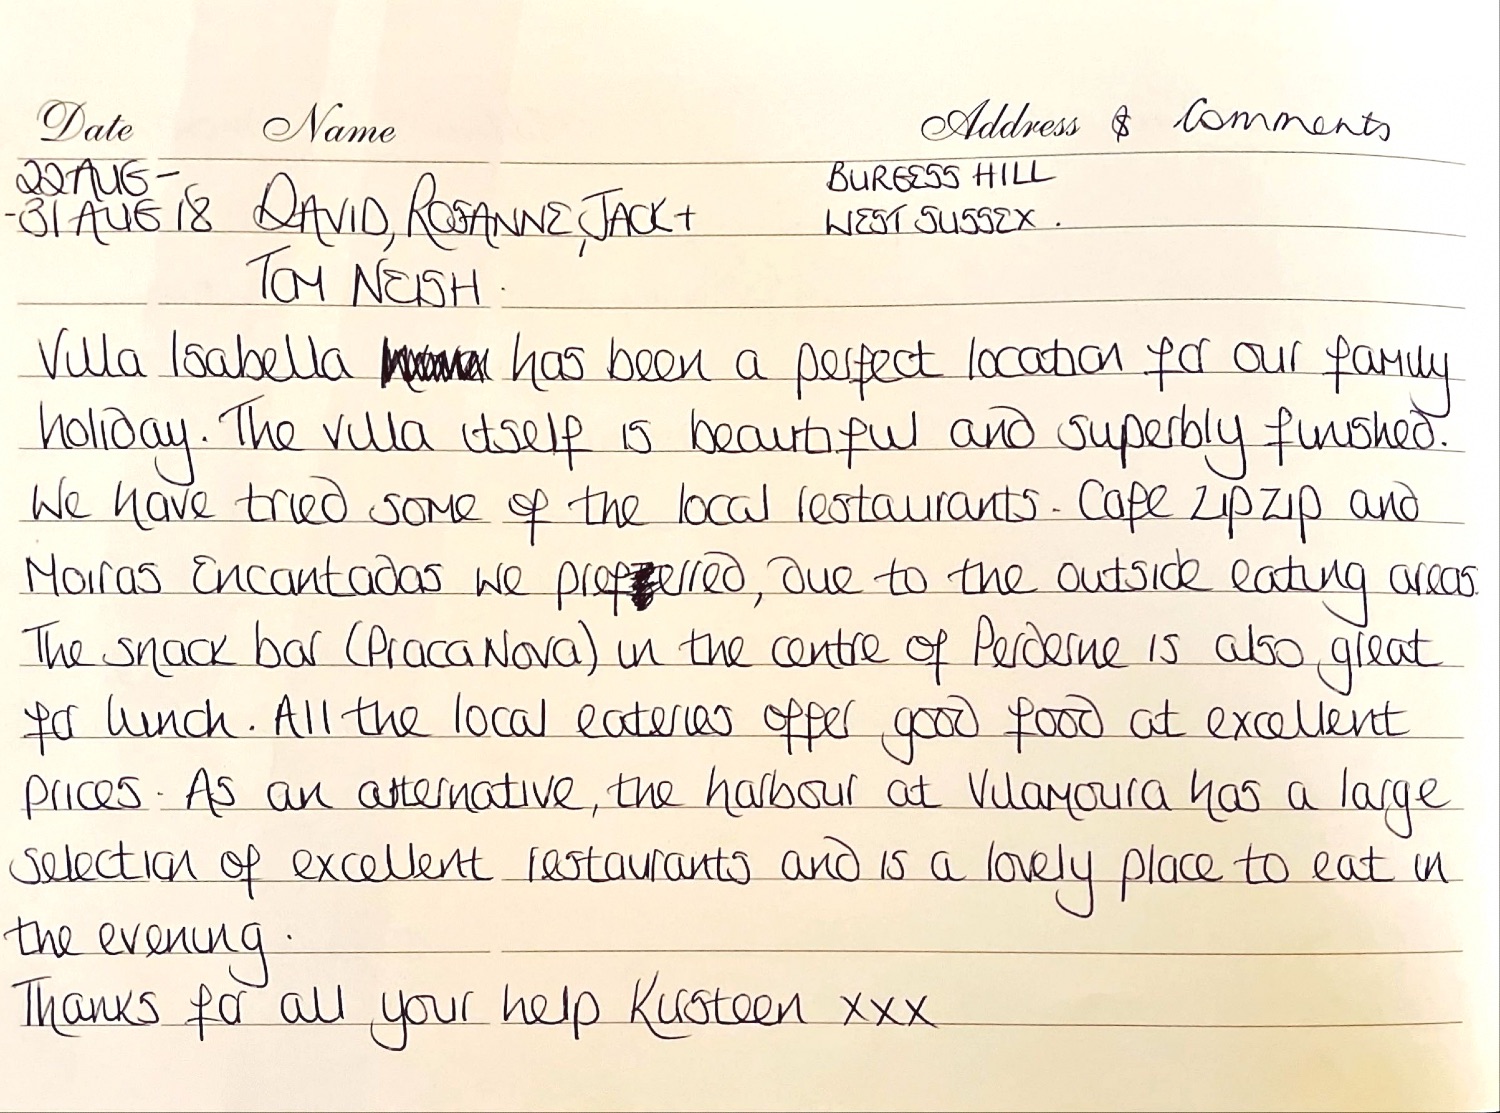 Date Name Address & Comments
22 AUG - BURGESS HILL
-31 AUG 18 DAVID, ROSANNE, JACK + WEST SUSSEX.
TOM NEISH.
Villa Isabella has been a perfect location for our family
holiday. The villa itself is beautiful and superbly finished.
We have tried some of the local restaurants. Cafe ZIPZIP and
Moiras Encantadas we preferred, due to the outside eating areas.
The snack bar (Praca Nova) in the centre of Perderne is also great
for lunch. All the local eateries offer good food at excellent
prices. As an alternative, the harbour at Vilamoura has a large
selection of excellent restaurants and is a lovely place to eat in
the evening.
Thanks for all your help Kirsteen xxx